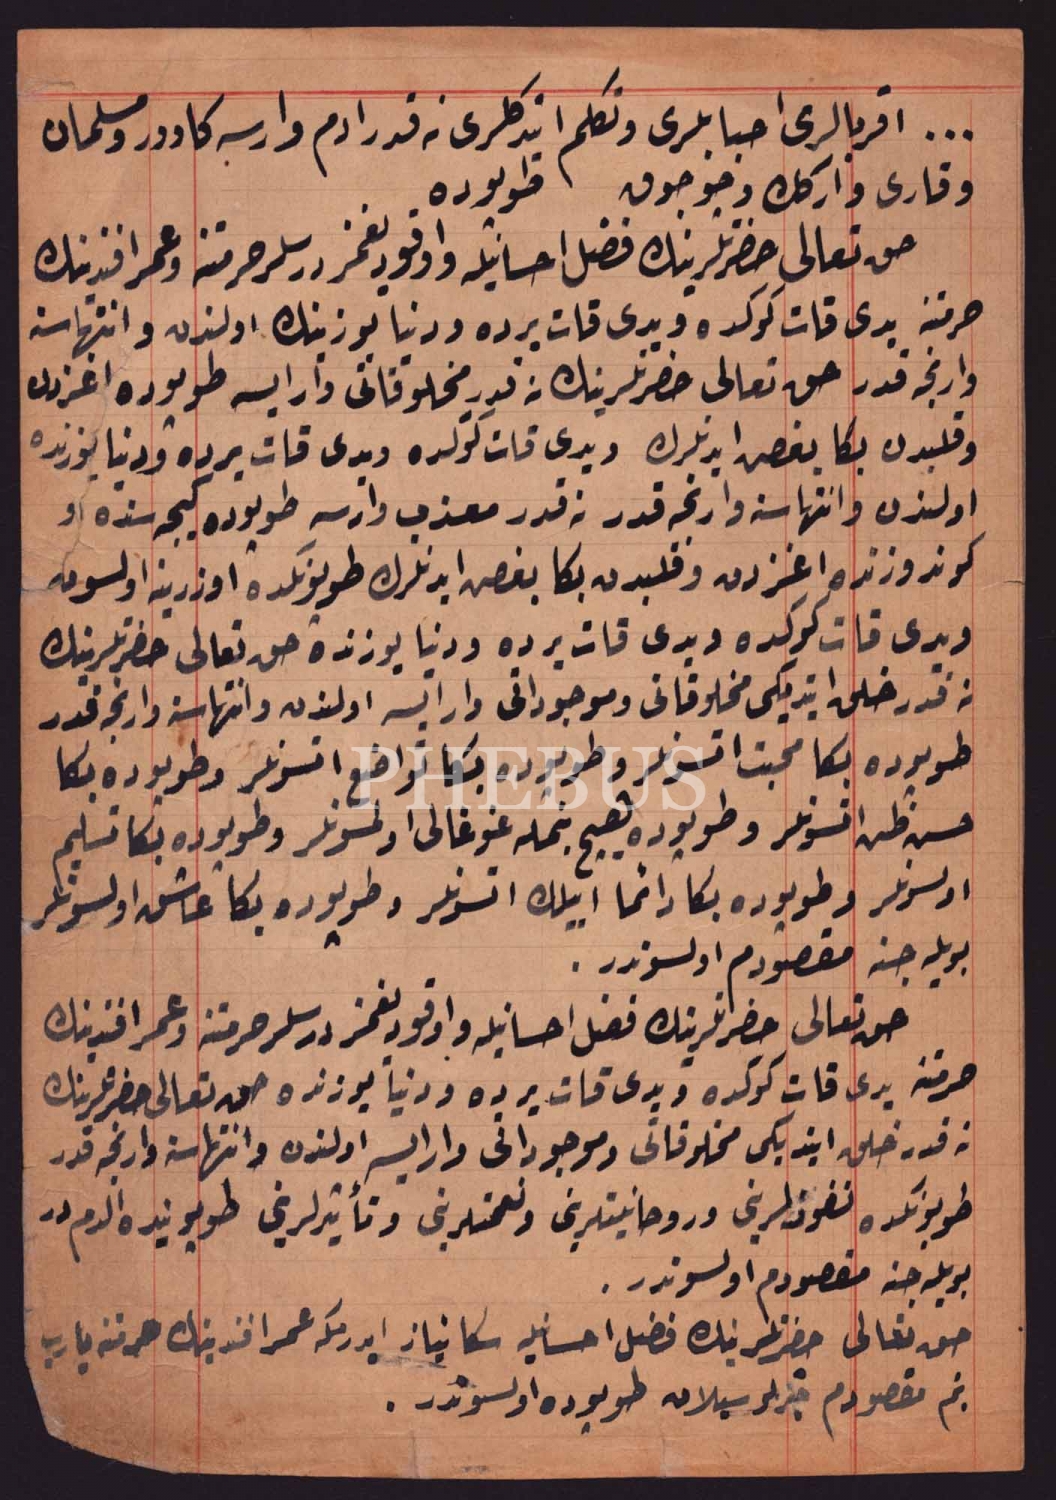 ... اقربالری احبابلری و تكلم ایتدكلری نه قدر ادم وارسه كاودور و مسلمان
و قاری و اركك و چوجوق طوپوده
حق تعالی حضرتلرینك فضل احسانیله و اوقودیغمز درسلر حرمتنه و عمر افندینك
حرمتنه یدی قات كوكده و یدی قات یرده و دنیا یوزینك اولندن و انتهاسنه
وارنجه قدر حق تعالی حضرتلرینك نه قدر مخلوقاتی وارایسه طوپوده اغزدن
و قلبدن بكا بغض ایدنلرك و یدی قات كوكده و یدی قات یرده و دنیا یوزنده
اولندن و انتهاسنه وارنجه قدر نه قدر معذب وارسه طوپوده كیجه سنده و
كوندوزنده اغزدن و قلبدن بكا بغض ایدنلرك طوپونكده اوزرینه اولسون
و یدی قات كوكده و یدی قات یرده و دنیا یوزنده حق تعالی حضرتلرینك
نه قدر خلق ایتدیكی مخلوقاتی و موجوداتی وارایسه اولندن و انتهاسنه وارنجه قدر
طوپوده بكا محبت اتسونلر و طوپوده بكا تواضع اتسونلر و طوپوده بكا
حسن ظن اتسونلر و طوپوده هیچ بنمله غوغالی اولمسونلر و طوپوده بكا تسلیم
اولسونلر و طوپوده بكا دائما اییلك اتسونلر و طوپوده بكا عاشق اولسونلر
بویله جنه مقصودم اولسوندر .
حق تعالی حضرتلرینك فضل احسانیله و اوقودیغمز درسلر حرمتنه و عمر افندینك
حرمتنه یدی قات كوكده و یدی قات یرده و دنیا یوزنده حق تعالی حضرتلرینك
نه قدر خلق ایتدیكی مخلوقاتی و موجوداتی وارایسه اولندن و انتهاسنه وارنجه قدر
طوپونكده نفوذلرینی و روحانیتلرینی و نعمتلرینی و تأثیرلرینی طوپونیده الدم در
بویله جنه مقصودم اولسوندر .
حق تعالی حضرتلرینك فضل احسانیله سكا نیاز ایدرمكه عمر افندینك حرمتنه یارب
بنم مقصودم طوپوده اولسوندر .
PHEBUS